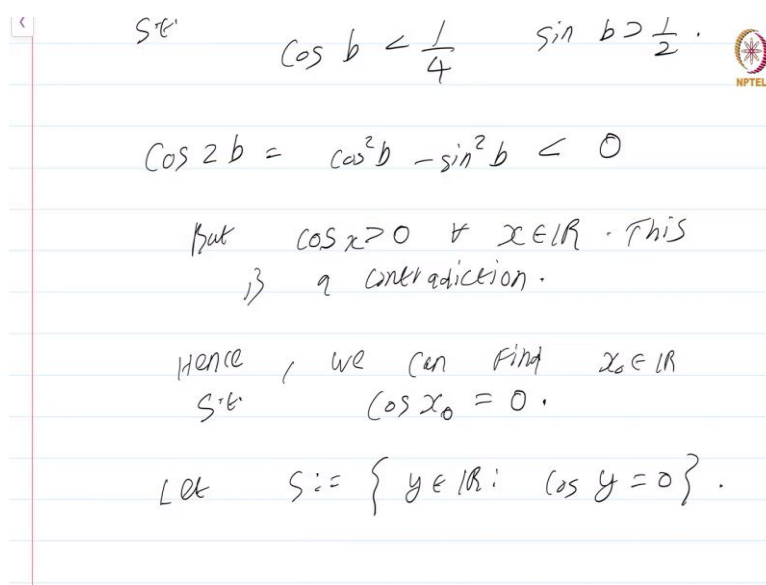 s.t. cos b < 1/4 sin b > 1/2 .
NPTEL
cos 2b = cos²b - sin²b < 0
But cos x > 0 ∀ x ∈ ℝ . This
is a contradiction.
Hence, we can find x₀ ∈ ℝ
s.t. cos x₀ = 0.
Let S := { y ∈ ℝ : cos y = 0 } .